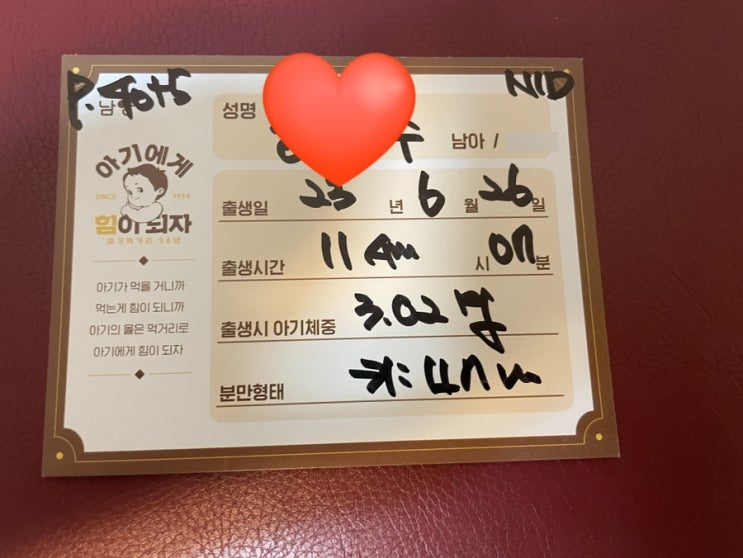 NID
성명 수 남아 /
아기에게
SINCE 1964
힘이 되자
아기먹거리 56년
출생일 23 년 6 월 26 일
출생시간 11 AM 시 07 분
출생시 아기체중 3.02 kg
분만형태
아기가 먹을 거니까
먹는게 힘이 되니까
아기의 옳은 먹거리로
아기에게 힘이 되자